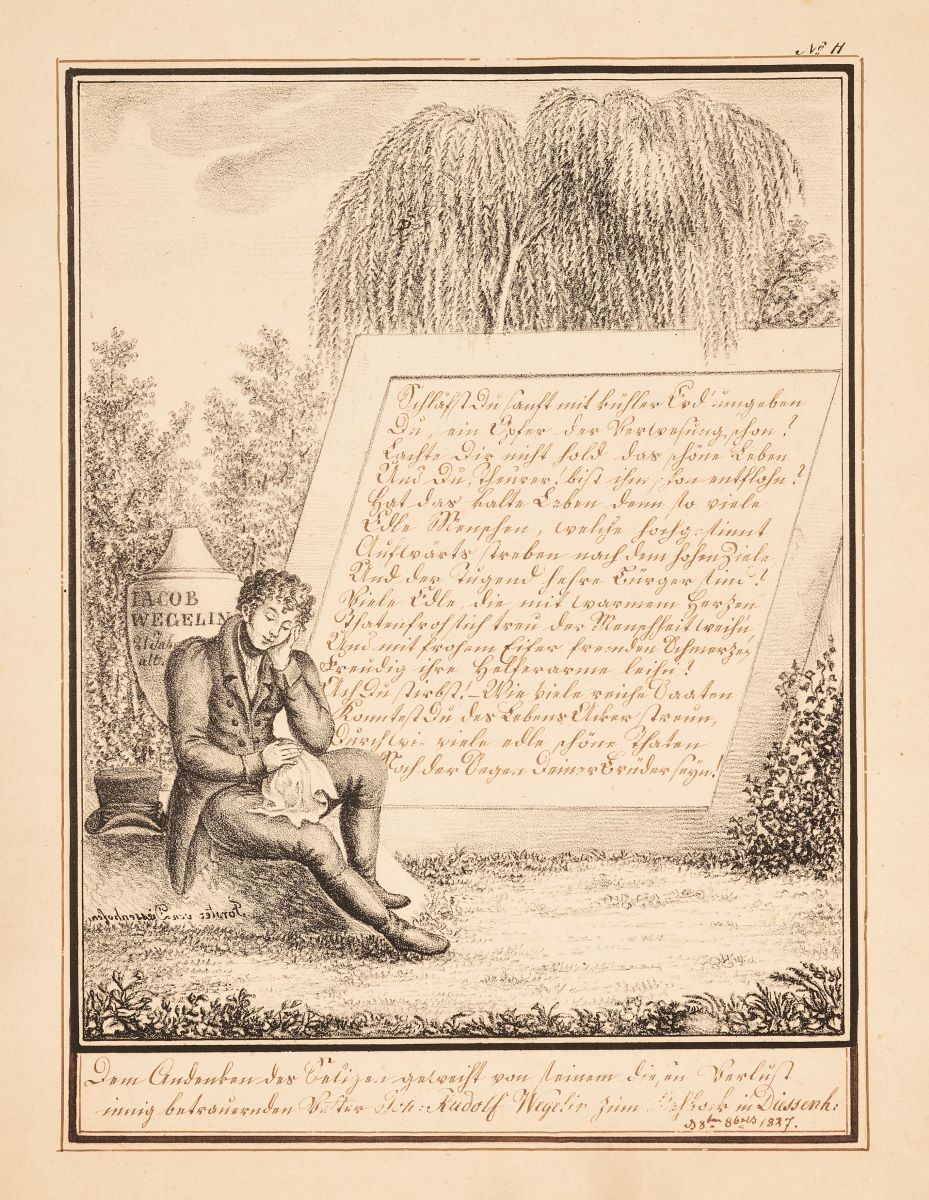 No. 11
Schläfst Du sanft mit kühler Erd' umgeben
Du, ein Opfer der Verwesung schon?
Lachte Dir nicht hold das schöne Leben
Und Du, Theurer! bist ihm schon entflohn?
Hat das kalte Leben denn so viele
Edle Menschen, welche hochgesinnt
Aufwärts streben nach dem hohen Ziele
Und der Tugend hehre Bürger sind?
Viele Edle, die mit warmem Herzen
Thatenfroh sich treu der Menschheit weihn,
Und mit frohem Eifer fremden Schmerzen
Freudig ihre Helferarme leihn?
Ach Du stirbst! – Wie viele reiche Saaten
Konntest Du des Lebens Acker streun,
Durch wie viele edle schöne Thaten
Noch der Segen Deiner Brüder seyn!
IACOB
WEGELIN
21 Jahr
alt.
Forster von Diessenhofen
Dem Andenken des Seligen geweiht von seinem diesen Verlust
innig betrauernden Vetter Joh: Rudolf Wegelin zum in Diessenh:
D 8ten 8bris 1827.